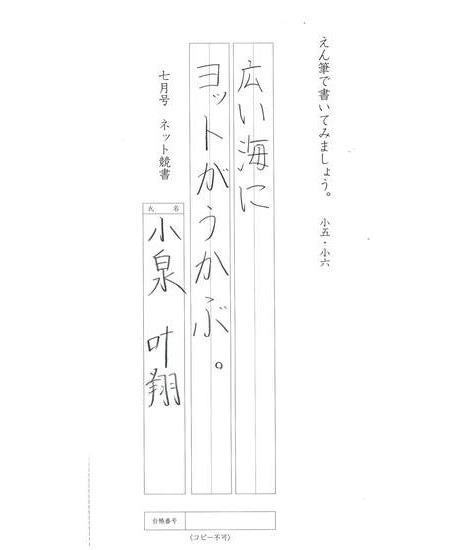 えん筆で書いてみましょう。 小五・小六
広い海に
ヨットがうかぶ。
七月号 ネット競書
氏 名
小泉 叶翔
合格番号
(コピー不可)